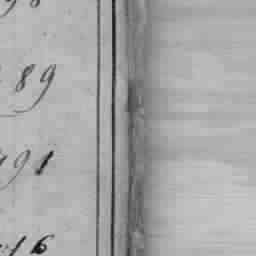 98
89
91
16